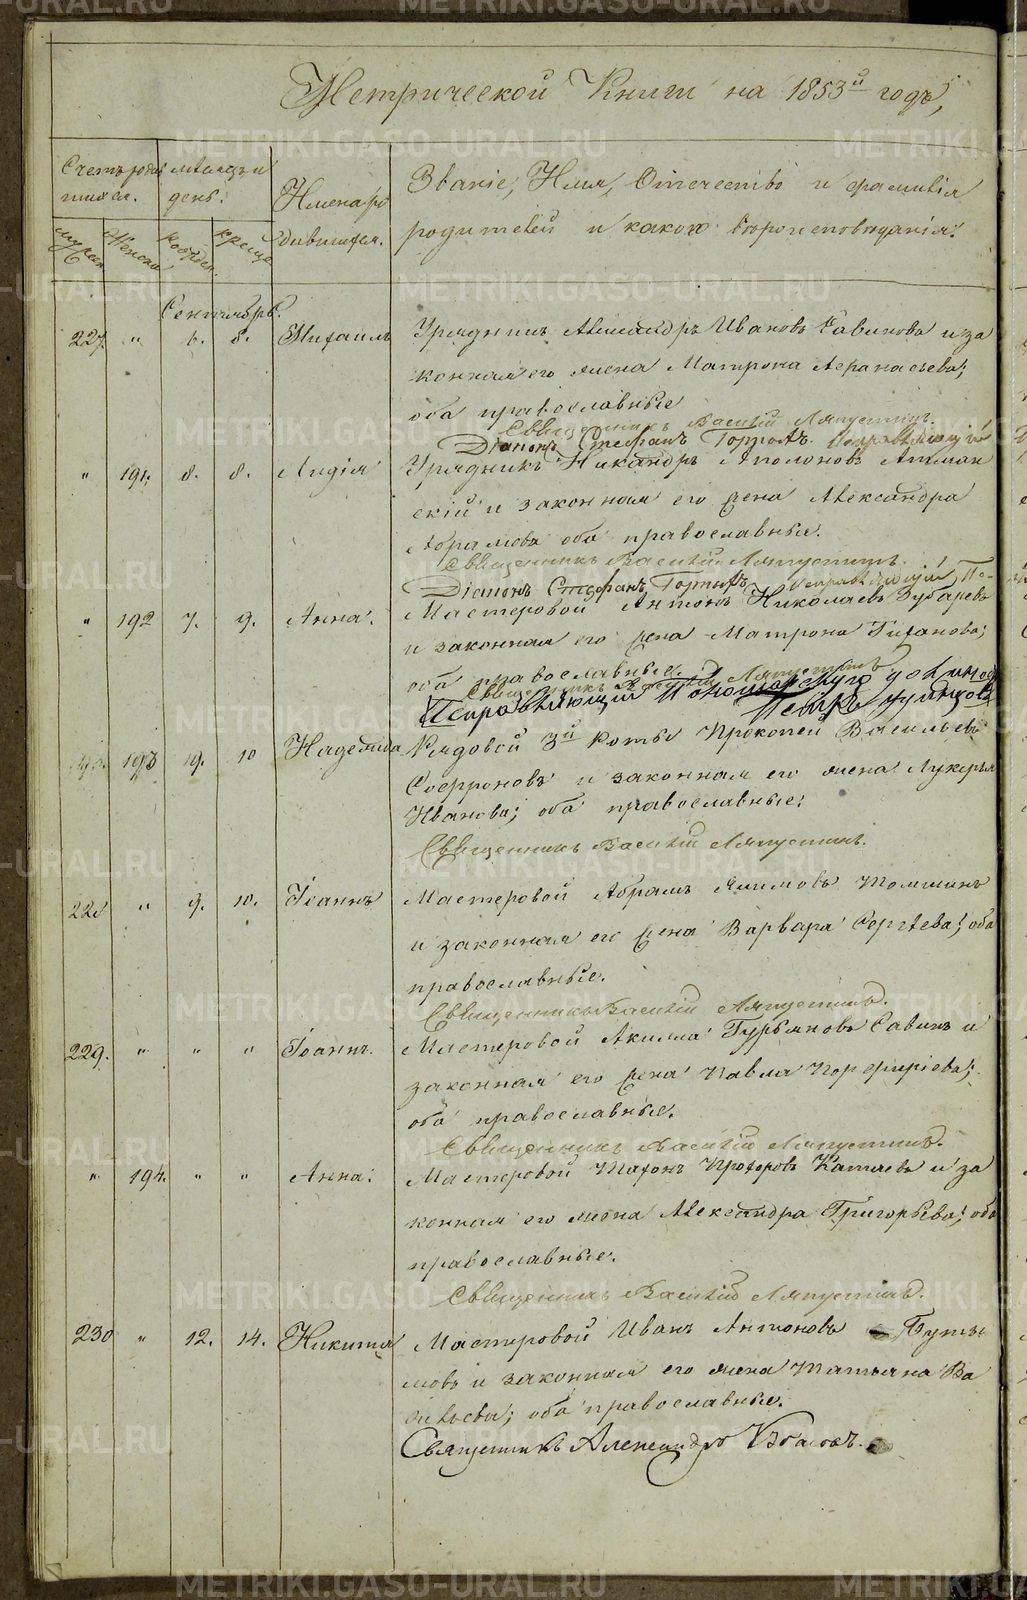 Метрической Книги на 1853й годъ,
Счетъ родив
шихся.
мѣсяцъ и
день.
Имена ро
дившихся.
Званіе, Имя, Отчество и фамилія
родителей и какого вѣроисповѣданія.
Женска
Сентябрь.
227. " 6. 8. Михаилъ Урядникъ Александръ Ивановъ и за
конная его жена Матрона Аѳанасьева;
оба православные
Священникъ Василій Ляпустинъ.
Діаконъ Стефанъ
" 191. 8. 8. Лидія Урядникъ Никандръ Аполоновъ
скій и законная его жена Александра
Абрамова оба православные.
Священникъ Василій Ляпустинъ.
Діаконъ Стефанъ
" 192 7. 9. Анна. Мастеровой Антонъ Николаевъ Зубаревъ
и законная его жена Матрона
оба православные.
Священникъ Василій Ляпустинъ
Исправляющій Пономарскую должнос
Петръ
193 9. 10 Надежда Рядовой 3й роты Прокопей Васильевъ
Софроновъ и законная его жена Лукерья
Иванова; оба православные;
Священникъ Василій Ляпустинъ.
228 " 9. 10. Іоаннъ Мастеровой Абрамъ Якимовъ
и законная его жена Варвара Сергѣева; оба
православные.
Священникъ Василій Ляпустинъ.
229. " " " Іоаннъ. Мастеровой Акилла Гурьяновъ Савинъ и
законная его жена Павла Порфиріева;
оба православные.
Священникъ Василій Ляпустинъ.
" 194. " " Анна. Мастеровой Прохоровъ Катаевъ и за
конная его жена Александра Григорьева; оба
православные.
Священникъ Василій Ляпустинъ.
230 " 12. 14. Никита Мастеровой Иванъ Антоновъ
мовъ и законная его жена Татьяна Ва
сильева; оба православные.
Священникъ Александръ
METRIKI.GASO-URAL.RU